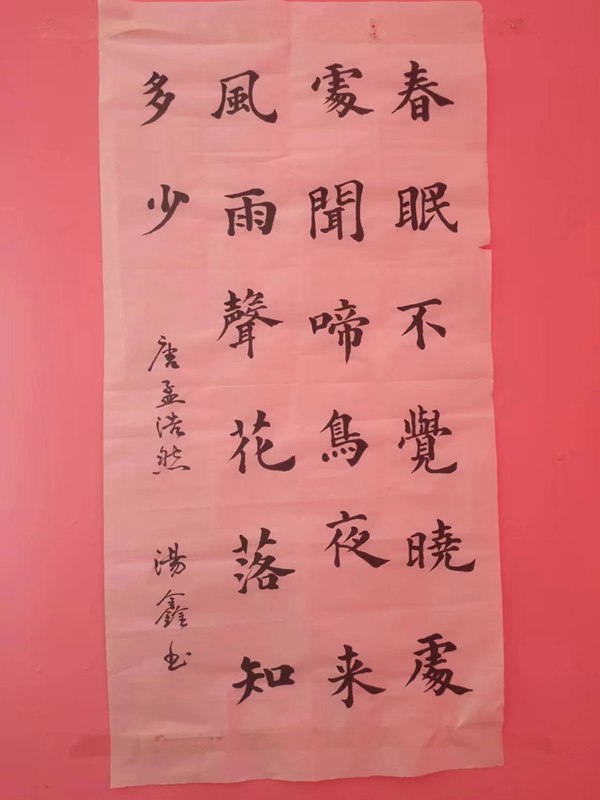 春眠不覺曉處
處聞啼鳥夜来
風雨聲花落知
多少
唐孟浩然 湯鑫书